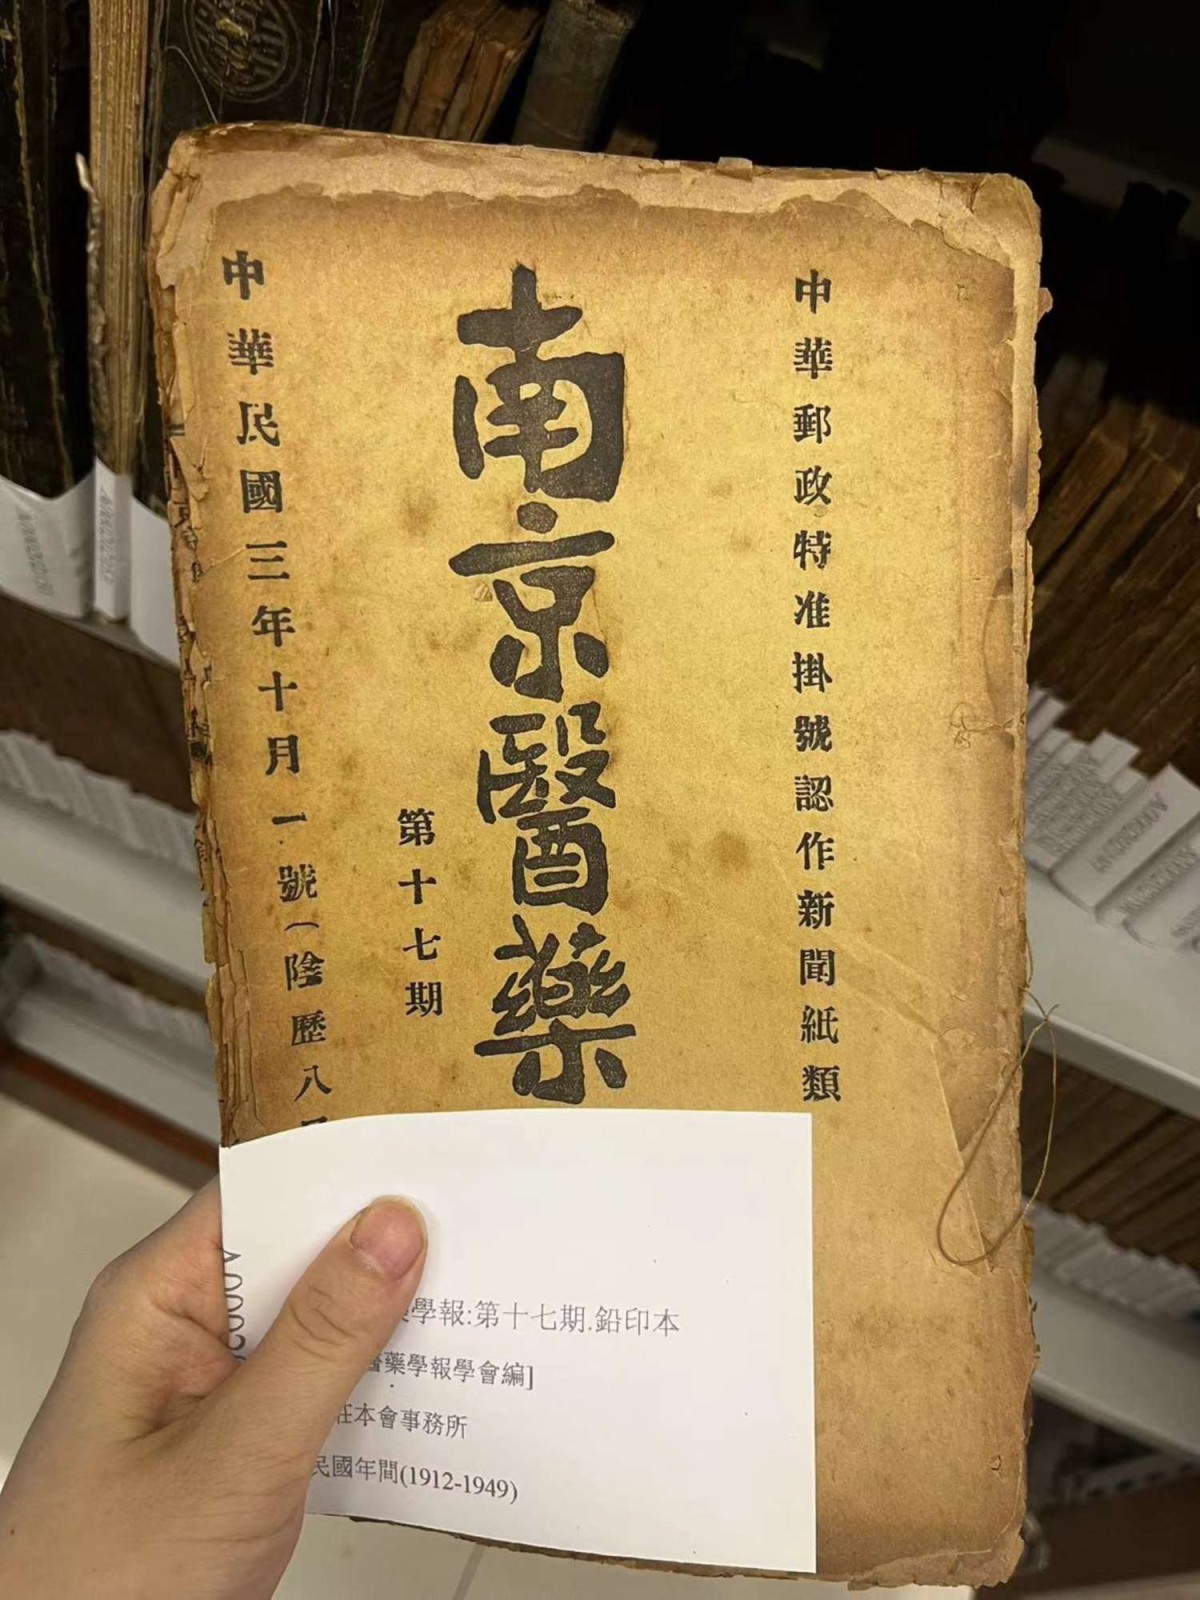 中華郵政特准掛號認作新聞紙類
南京醫藥
第十七期
中華民國三年十月一號(陰歷八
學報:第十七期.鉛印本
醫藥學報學會編]
在本會事務所
民國年間(1912-1949)